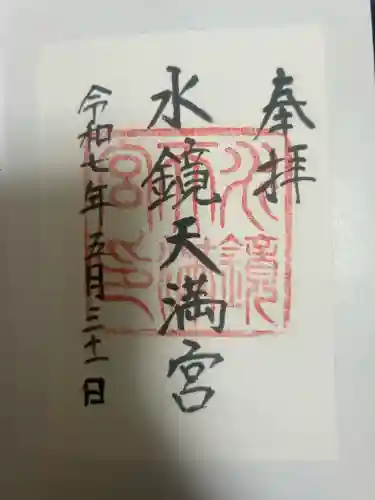 奉拝
水鏡天満宮
令和七年五月三十一日